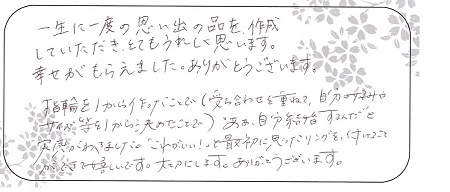 一生に一度の思い出の品を、作成
していただき、とてもうれしく思います。
幸せがもらえました。ありがとうございます。
指輪を1から作ることで（打ち合わせを重ねて、自分の好みや
サイズ等を1から決めたことで）ああ、自分結婚するんだ"と
実感がわきました。"これがいい！"と最初に思ったリングを付けること
ができて嬉しいです。大切にします。ありがとうございます。